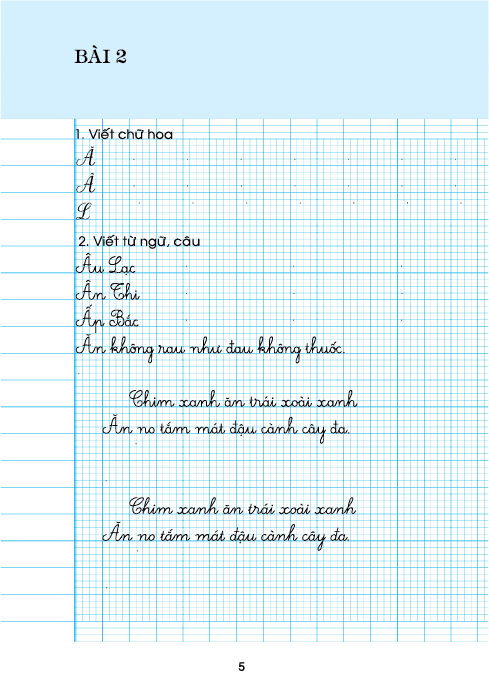 BÀI 2
1. Viết chữ hoa
Ă
Â
L
2. Viết từ ngữ, câu
Âu Lạc
Ân Thi
Ấp Bắc
Ăn không rau như đau không thuốc.
Chim xanh ăn trái xoài xanh
Ăn no tắm mát đậu cành cây đa.
Chim xanh ăn trái xoài xanh
Ăn no tắm mát đậu cành cây đa.
5